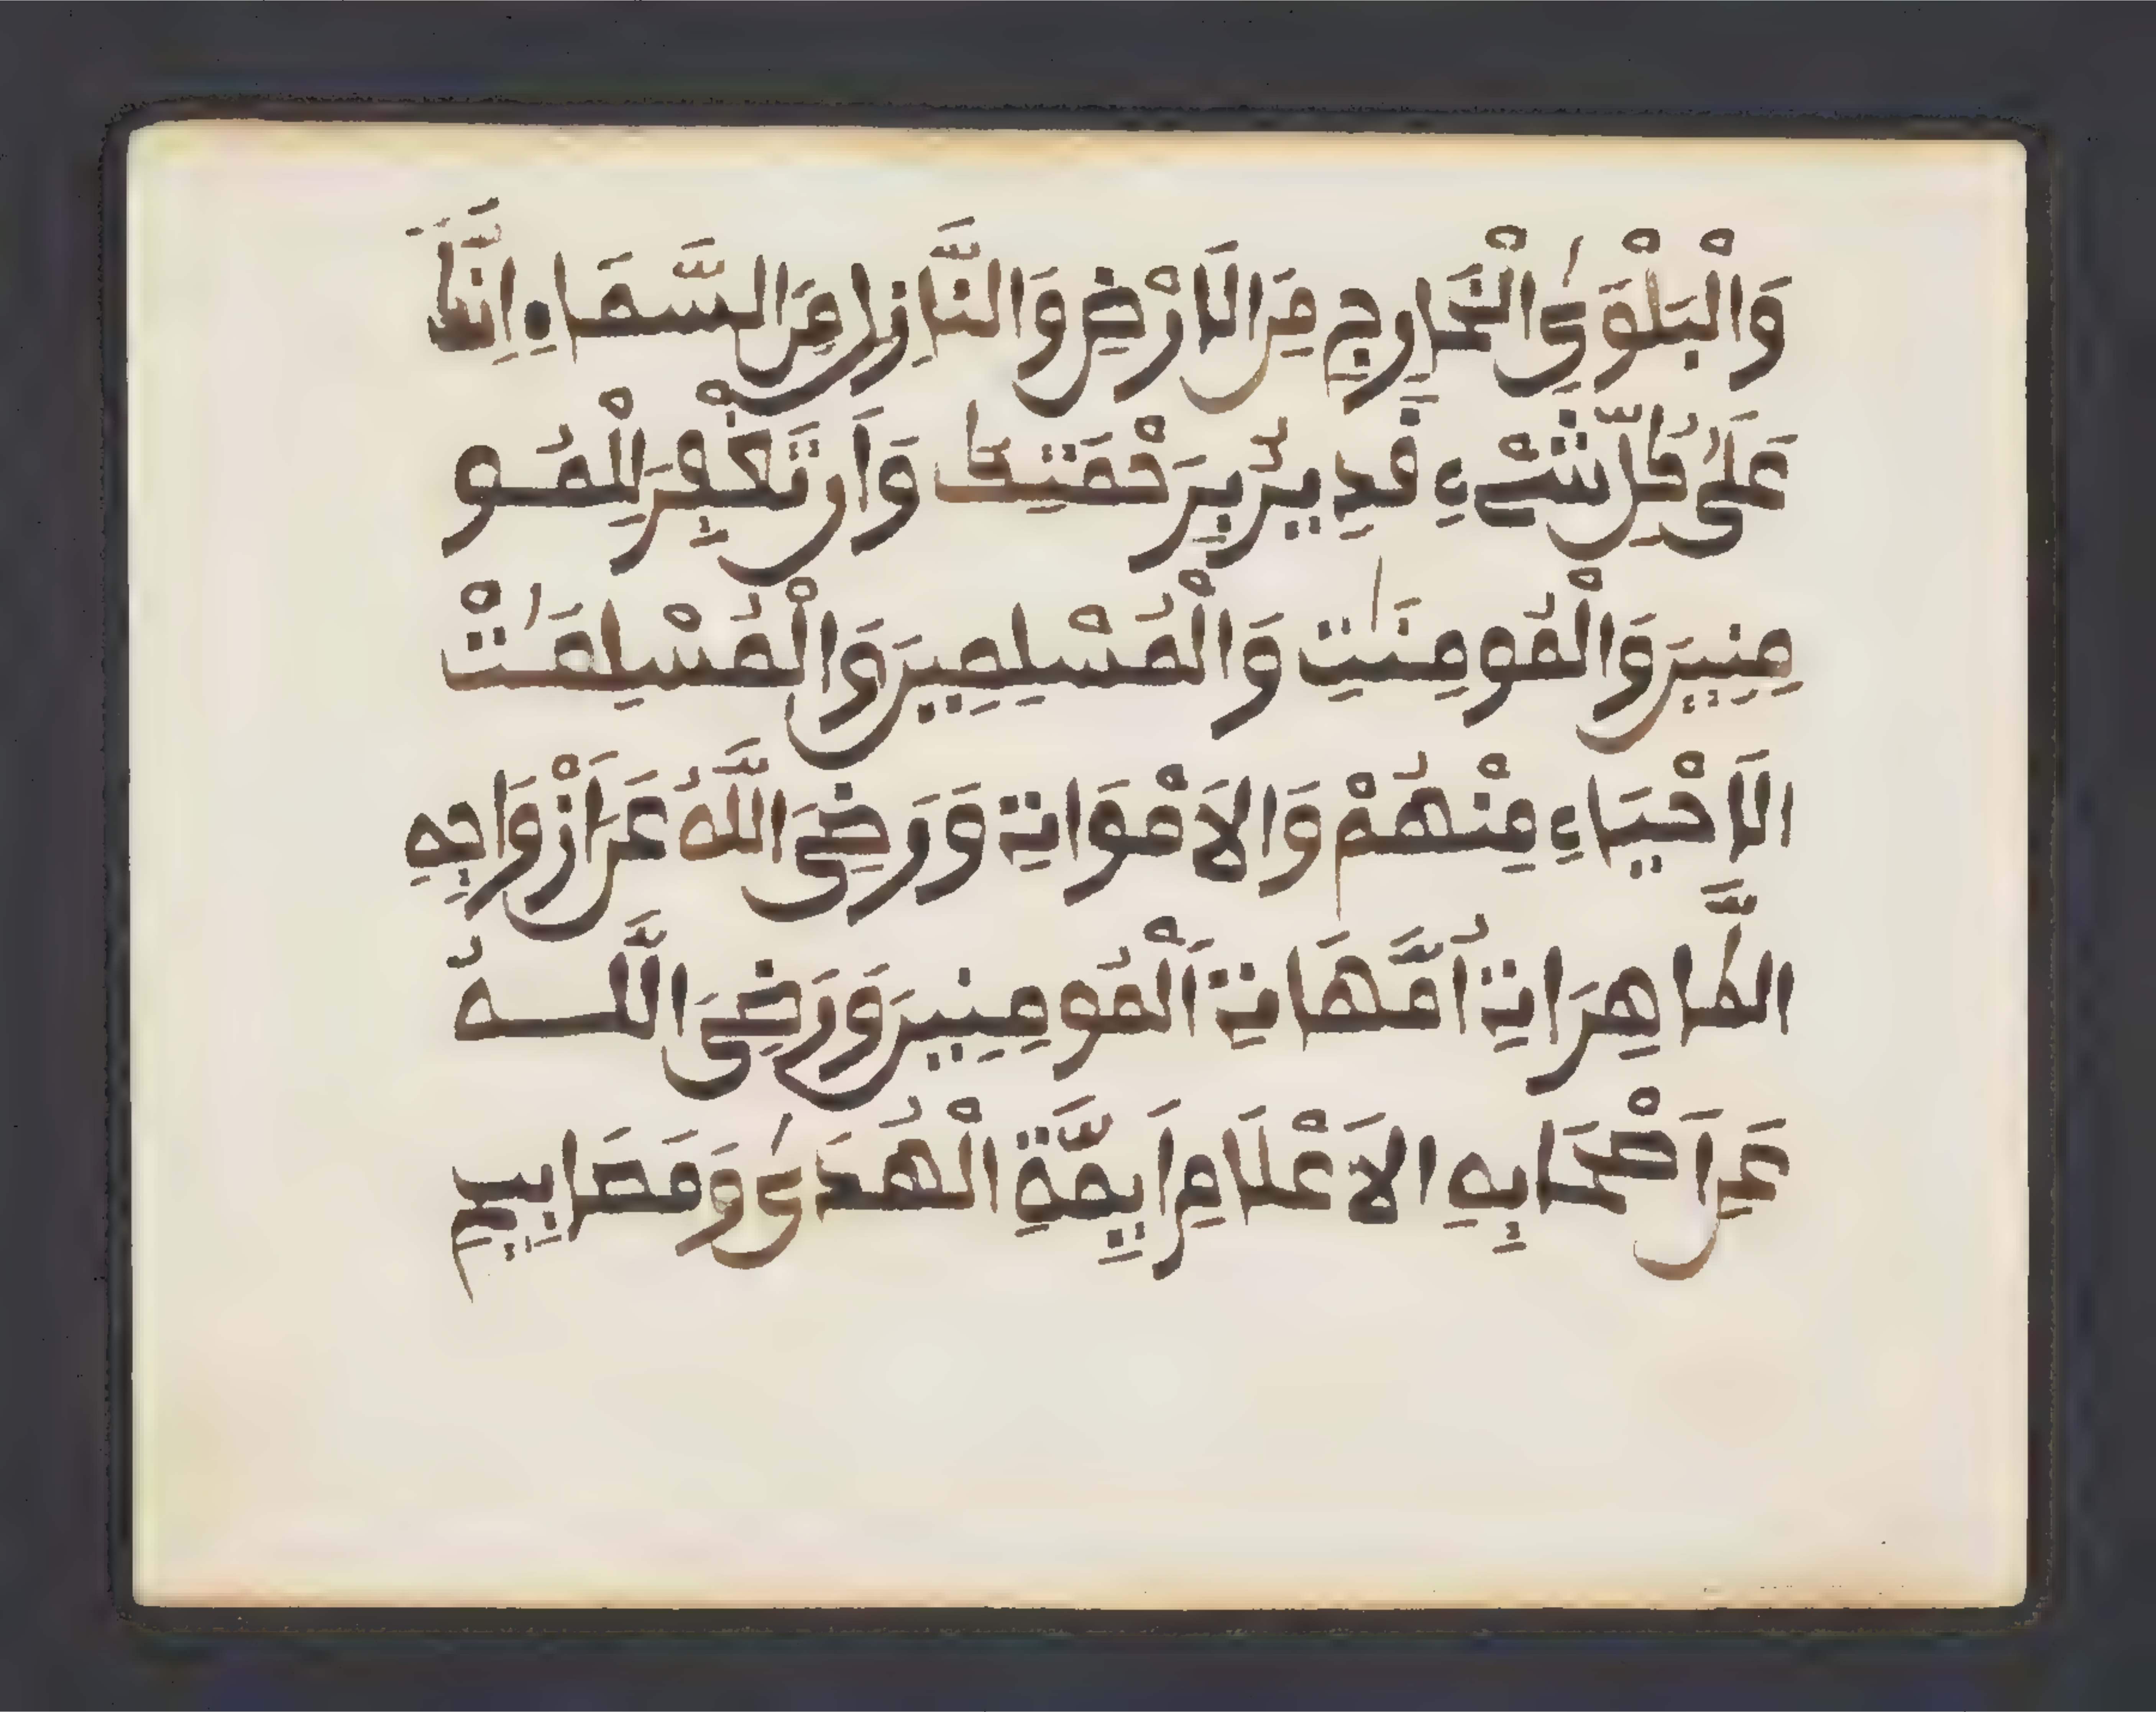 وَالْبَلْوَىٰ الْخَارِجِ مِنَ الَارْضِ وَالنَّازِلِ مِنَ السَّمَاءِ اِنَّكَ
عَلَىٰ كُلِّ شَےْءٍ قَدِيرٌ بِرَحْمَتِكَ وَأَن تَغْفِرَ لِلْمُو
مِنِينَ وَالْمُومِنَٰتِ وَالْمُسْلِمِينَ وَالْمُسْلِمَٰتْ
الَاحْيَاءِ مِنْهُمْ وَالَامْوَاتِ وَرَضِىَ اللَّهُ عَنَ اَزْوَاجِهِ
الطَّاهِرَاتِ أُمَّهَاتِ اَلْمُومِنِينَ وَرَضِىَ اللَّـهُ
عَنَ اَصْحَابِهِ الَاعْلَامِ أَيِمَّةِ الْهُدَىٰ وَمَصَابِيحِ